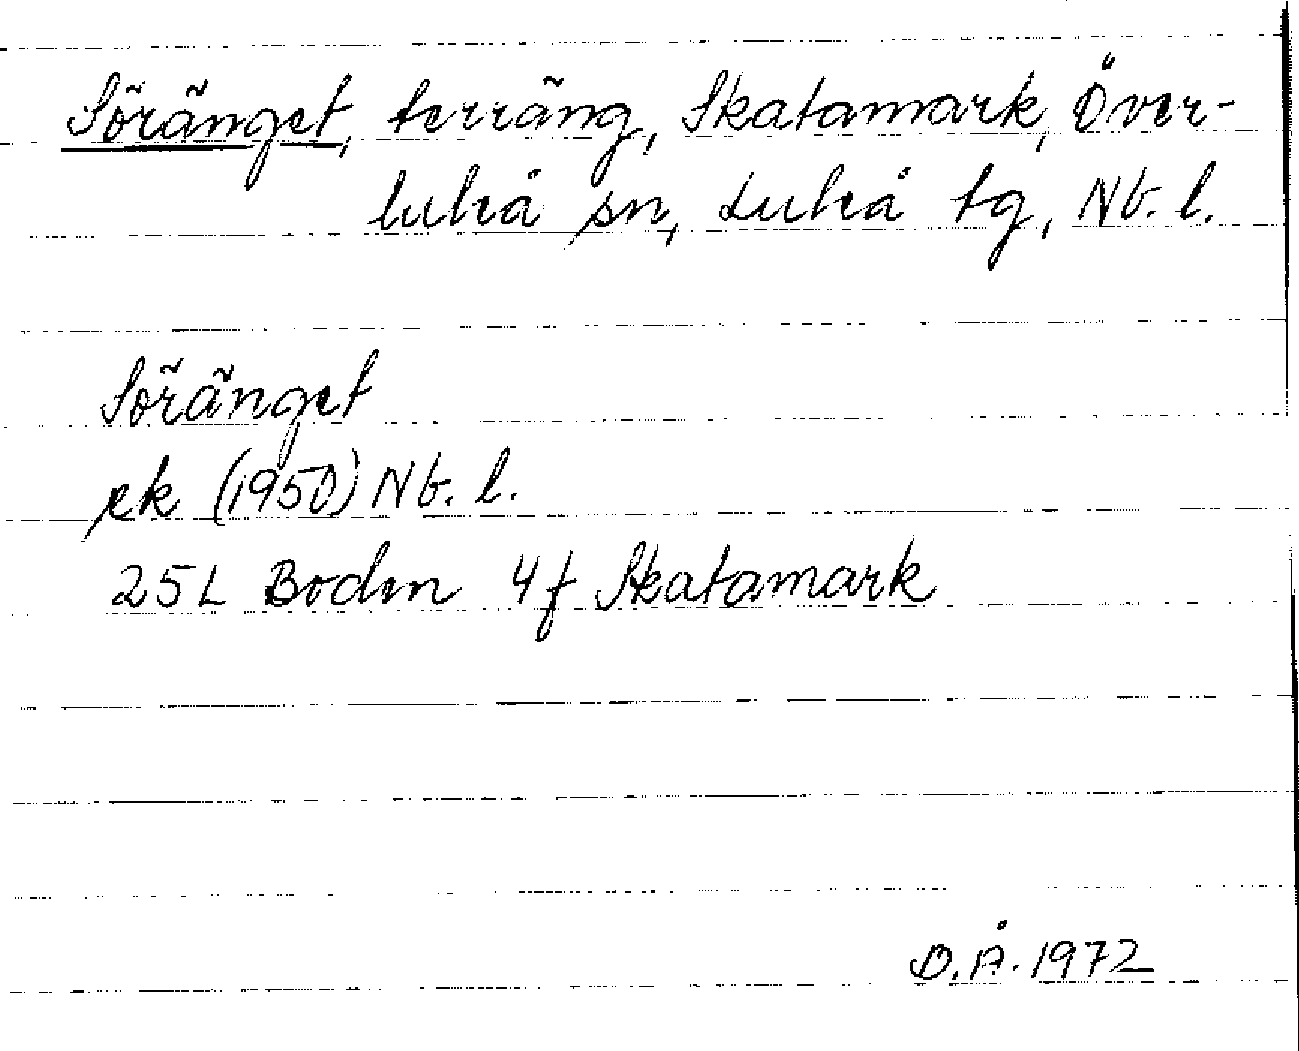 Söränget, terräng, Skatamark, Över-
luleå sn, Luleå tg, Nb. l.
Söränget
ek (1950) Nb. l.
25L Boden 4f Skatamark
D.Å. 1972